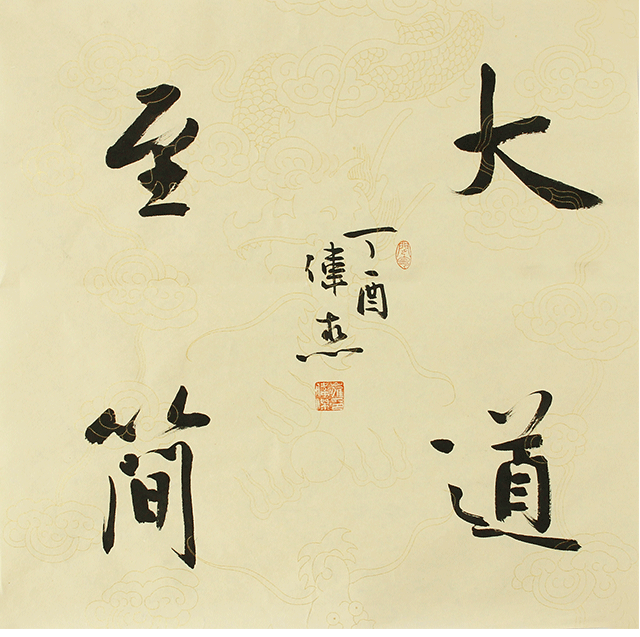 大道
至简
丁酉
伟杰